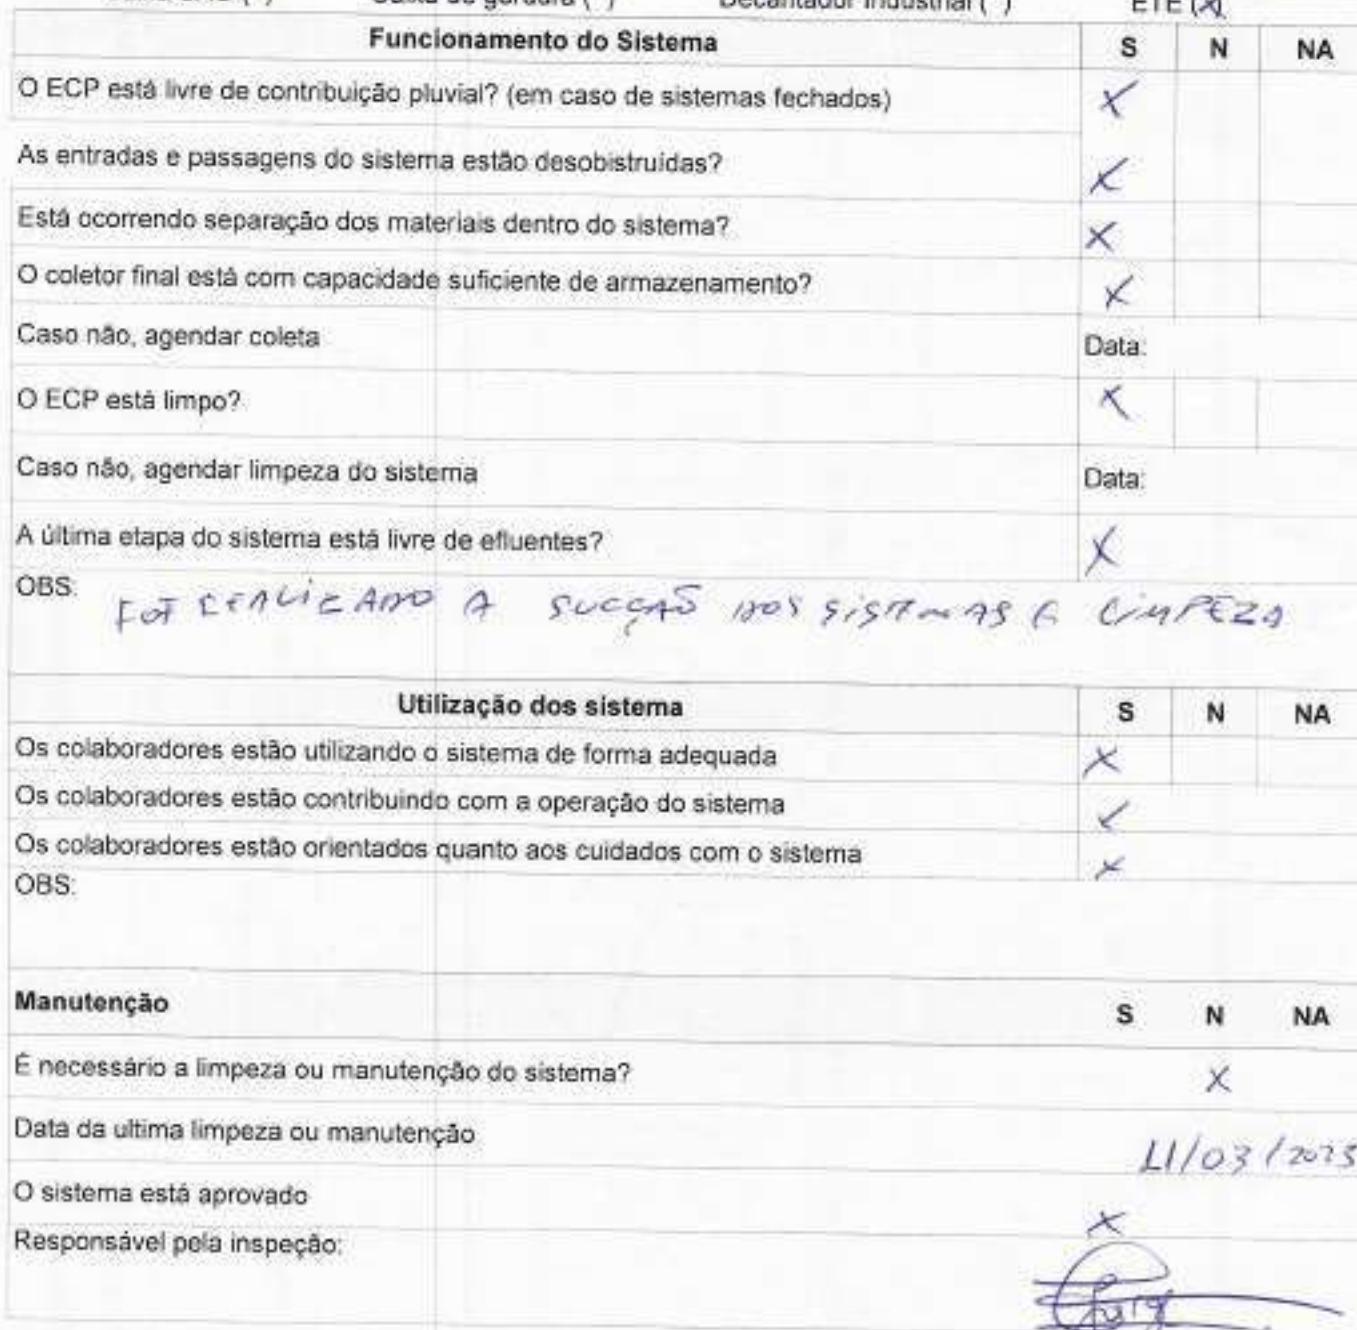 Caixa de gordura ( ) Decantador Industrial ( ) ETE (X)
Funcionamento do Sistema S N NA
O ECP está livre de contribuição pluvial? (em caso de sistemas fechados) X
As entradas e passagens do sistema estão desobistruídas? X
Está ocorrendo separação dos materiais dentro do sistema? X
O coletor final está com capacidade suficiente de armazenamento? X
Caso não, agendar coleta Data:
O ECP está limpo? X
Caso não, agendar limpeza do sistema Data:
A última etapa do sistema está livre de efluentes? X
OBS: FOI REALIZADO A SUCÇÃO DOS SISTEMAS E LIMPEZA
Utilização dos sistema S N NA
Os colaboradores estão utilizando o sistema de forma adequada X
Os colaboradores estão contribuindo com a operação do sistema X
Os colaboradores estão orientados quanto aos cuidados com o sistema X
OBS:
Manutenção S N NA
É necessário a limpeza ou manutenção do sistema? X
Data da ultima limpeza ou manutenção
O sistema está aprovado X
Responsável pela inspeção: